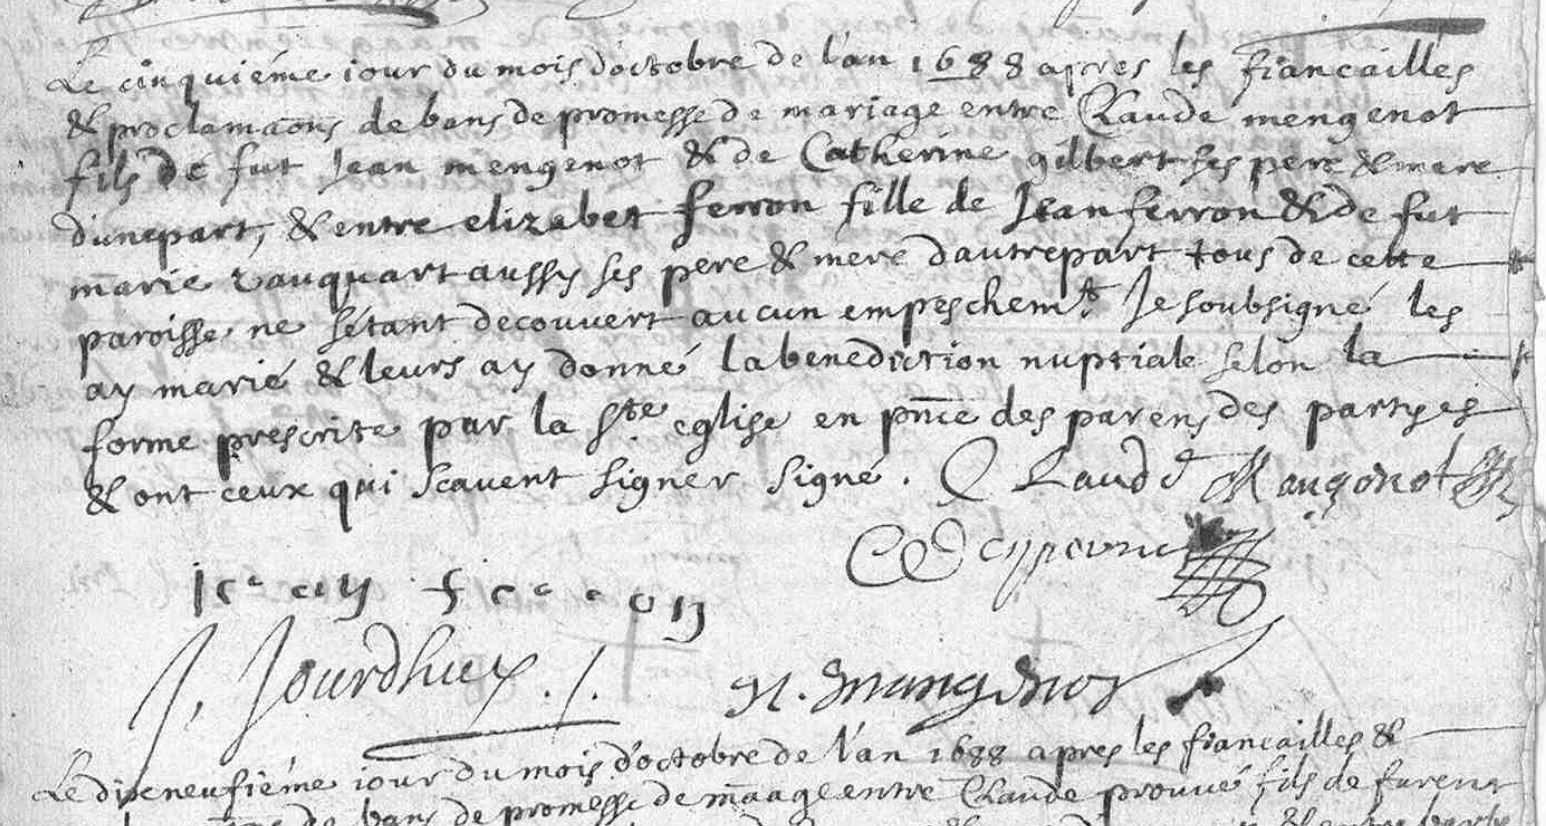 Le cinquiéme iour du mois d'octobre de l'an 1688 apres les fiancailles
& proclamaons de bans de promesse de mariage entre Claude mengenot
fils de fut Jean mengenot & de Catherine gilbert ses pere & mere
d'une part, & entre elizabet ferron fille de Jean ferron & de fut
marie vauquart aussy ses pere & mere d'autre part tous de cette
paroisse ne s'étant decouvert aucun empeschemt. Je soubsigné les
ay marié & leurs ay donné la benediction nuptiale selon la
forme prescrite par la Ste eglise en pnce des parens des partyes
& ont ceux qui scavent signer signé. Claude Mangonot
J. Jourdhuy
N. mangenot
Le dixeneufiéme iour du mois d'octobre de l'an 1688 apres les fiancailles &
de bans de promesse de maage entre Claude prouvé fils de furent